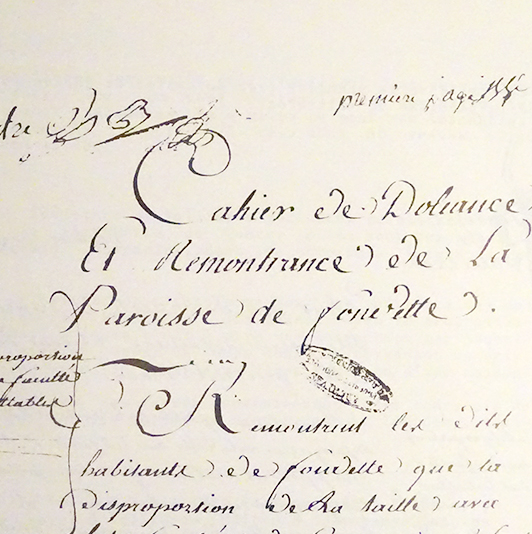 première page
Cahier de Doleance
Et Remontrance de La
Paroisse de fouvette.
proportion
faculté
Remontrent les dits
habitants de fouvette que la
disproportion de La taille avec